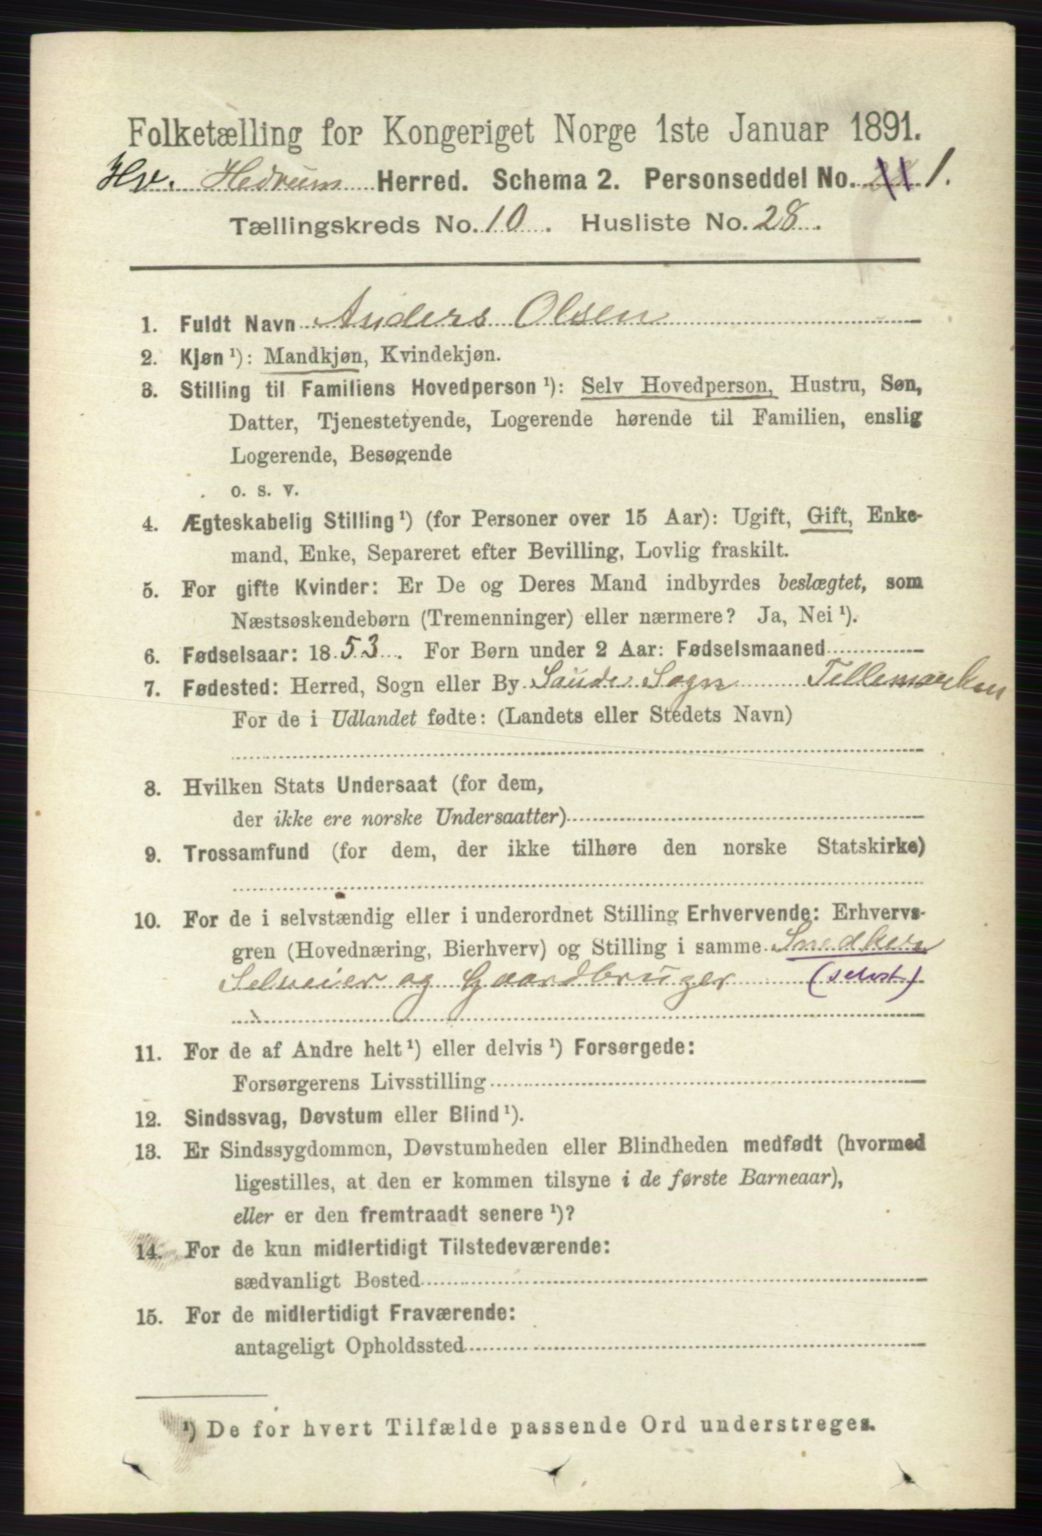 Folketælling for Kongeriget Norge 1ste Januar 1891.
Hv. Hedrum Herred. Schema 2. Personseddel No. 1.
Tællingskreds No. 10. Husliste No. 28.
1. Fuldt Navn Anders Olsen
2. Kjøn¹): Mandkjøn, Kvindekjøn.
3. Stilling til Familiens Hovedperson¹): Selv Hovedperson, Hustru, Søn,
Datter, Tjenestetyende, Logerende hørende til Familien, enslig
Logerende, Besøgende
o. s. v.
4. Ægteskabelig Stilling¹) (for Personer over 15 Aar): Ugift, Gift, Enke-
mand, Enke, Separeret efter Bevilling, Lovlig fraskilt.
5. For gifte Kvinder: Er De og Deres Mand indbyrdes beslægtet, som
Næstsøskendebørn (Tremenninger) eller nærmere? Ja, Nei¹).
6. Fødselsaar: 1853. For Børn under 2 Aar: Fødselsmaaned
7. Fødested: Herred, Sogn eller By Saude Sogn Tellemarken
For de i Udlandet fødte: (Landets eller Stedets Navn)
8. Hvilken Stats Undersaat (for dem,
der ikke ere norske Undersaatter)
9. Trossamfund (for dem, der ikke tilhøre den norske Statskirke)
10. For de i selvstændig eller i underordnet Stilling Erhvervende: Erhvervs-
gren (Hovednæring, Bierhverv) og Stilling i samme Snedker
Selveier og Gaardbruger (selvst)
11. For de af Andre helt¹) eller delvis¹) Forsørgede:
Forsørgerens Livsstilling
12. Sindssvag, Døvstum eller Blind¹).
13. Er Sindssygdommen, Døvstumheden eller Blindheden medfødt (hvormed
ligestilles, at den er kommen tilsyne i de første Barneaar),
eller er den fremtraadt senere¹)?
14. For de kun midlertidigt Tilstedeværende:
sædvanligt Bosted
15. For de midlertidigt Fraværende:
antageligt Opholdssted
¹) De for hvert Tilfælde passende Ord understreges.